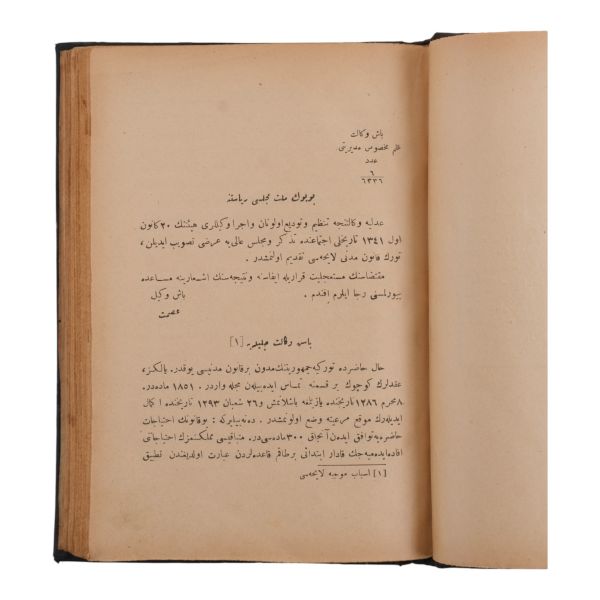 باش وكالت
قلم مخصوص مديريتى
عدد
٦
٦٣٣٦
بويوك ملت مجلسى رياستنه
عدليه وكالتنجه تنظيم و توديع اولونان و اجرا وكيللرى هيئتنك ٢٠ كانون
اول ١٣٤١ تاريخلى اجتماعنده تذكر و مجلس عالى يه عرضى تصويب ايديلن،
تورك قانون مدنى لايحه سى تقديم اولنمشدر .
مقتضاسنك مستعجليت قراريله ايفاسنه و نتيجه سنك اشعارينه مساعده
بيورلمسنى رجا ايلرم افندم .
باش وكيل
عصمت
باش وكالت جليله يه [١]
حال حاضرده توركيه جمهوريتنك مدون بر قانون مدنيسى يوقدر. يالكز،
عقدلرك كوچوك بر قسمنه تماس ايده بيلن مجله واردر . ١٨٥١ ماده در.
٨ محرم ١٢٨٦ تاريخنده يازيلمغه باشلانمش و ٢٦ شعبان ١٢٩٣ تاريخنده اكمال
ايديله رك موقع مرعيته وضع اولونمشدر . دينه بيليركه : بو قانونك احتياجات
حاضره يه توافق ايدن آنجاق ٣٠٠ ماده سى در. متباقيسى مملكتمزك احتياجاتى
افاده ايده ميه جك قادار ابتدائى بر طاقم قاعده لردن عبارت اولديغندن تطبيق
[١] اسباب موجبه لايحه سى